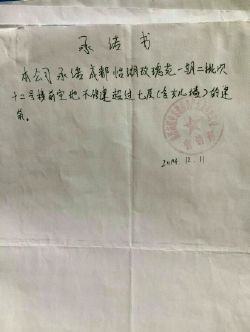 承诺书
本公司承诺成都怡湖玫瑰苑一期二批次
十二号楼前空地不修建超过七层(含女儿墙)的建
筑。
2014.12.11